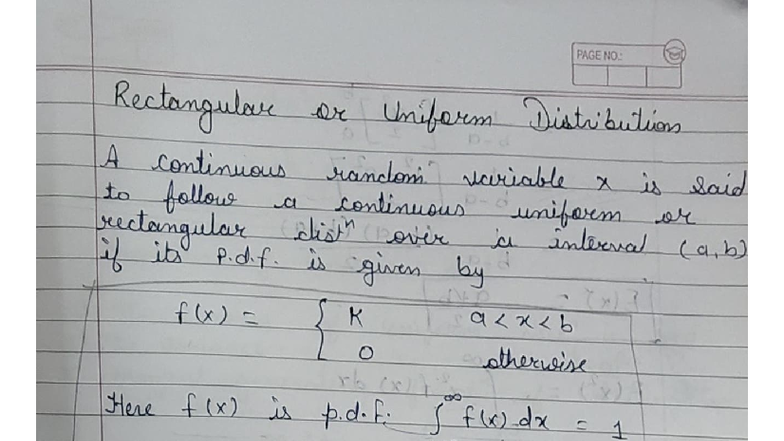 PAGE NO.:
Rectangular or Uniform Distribution
A continuous random variable x is said
to follow a continuous uniform or
rectangular distⁿ over a interval (a,b)
if its p.d.f. is given by
f(x) = { K a < x < b
0 otherwise
Here f(x) is p.d.f. ∫^∞ f(x) dx = 1